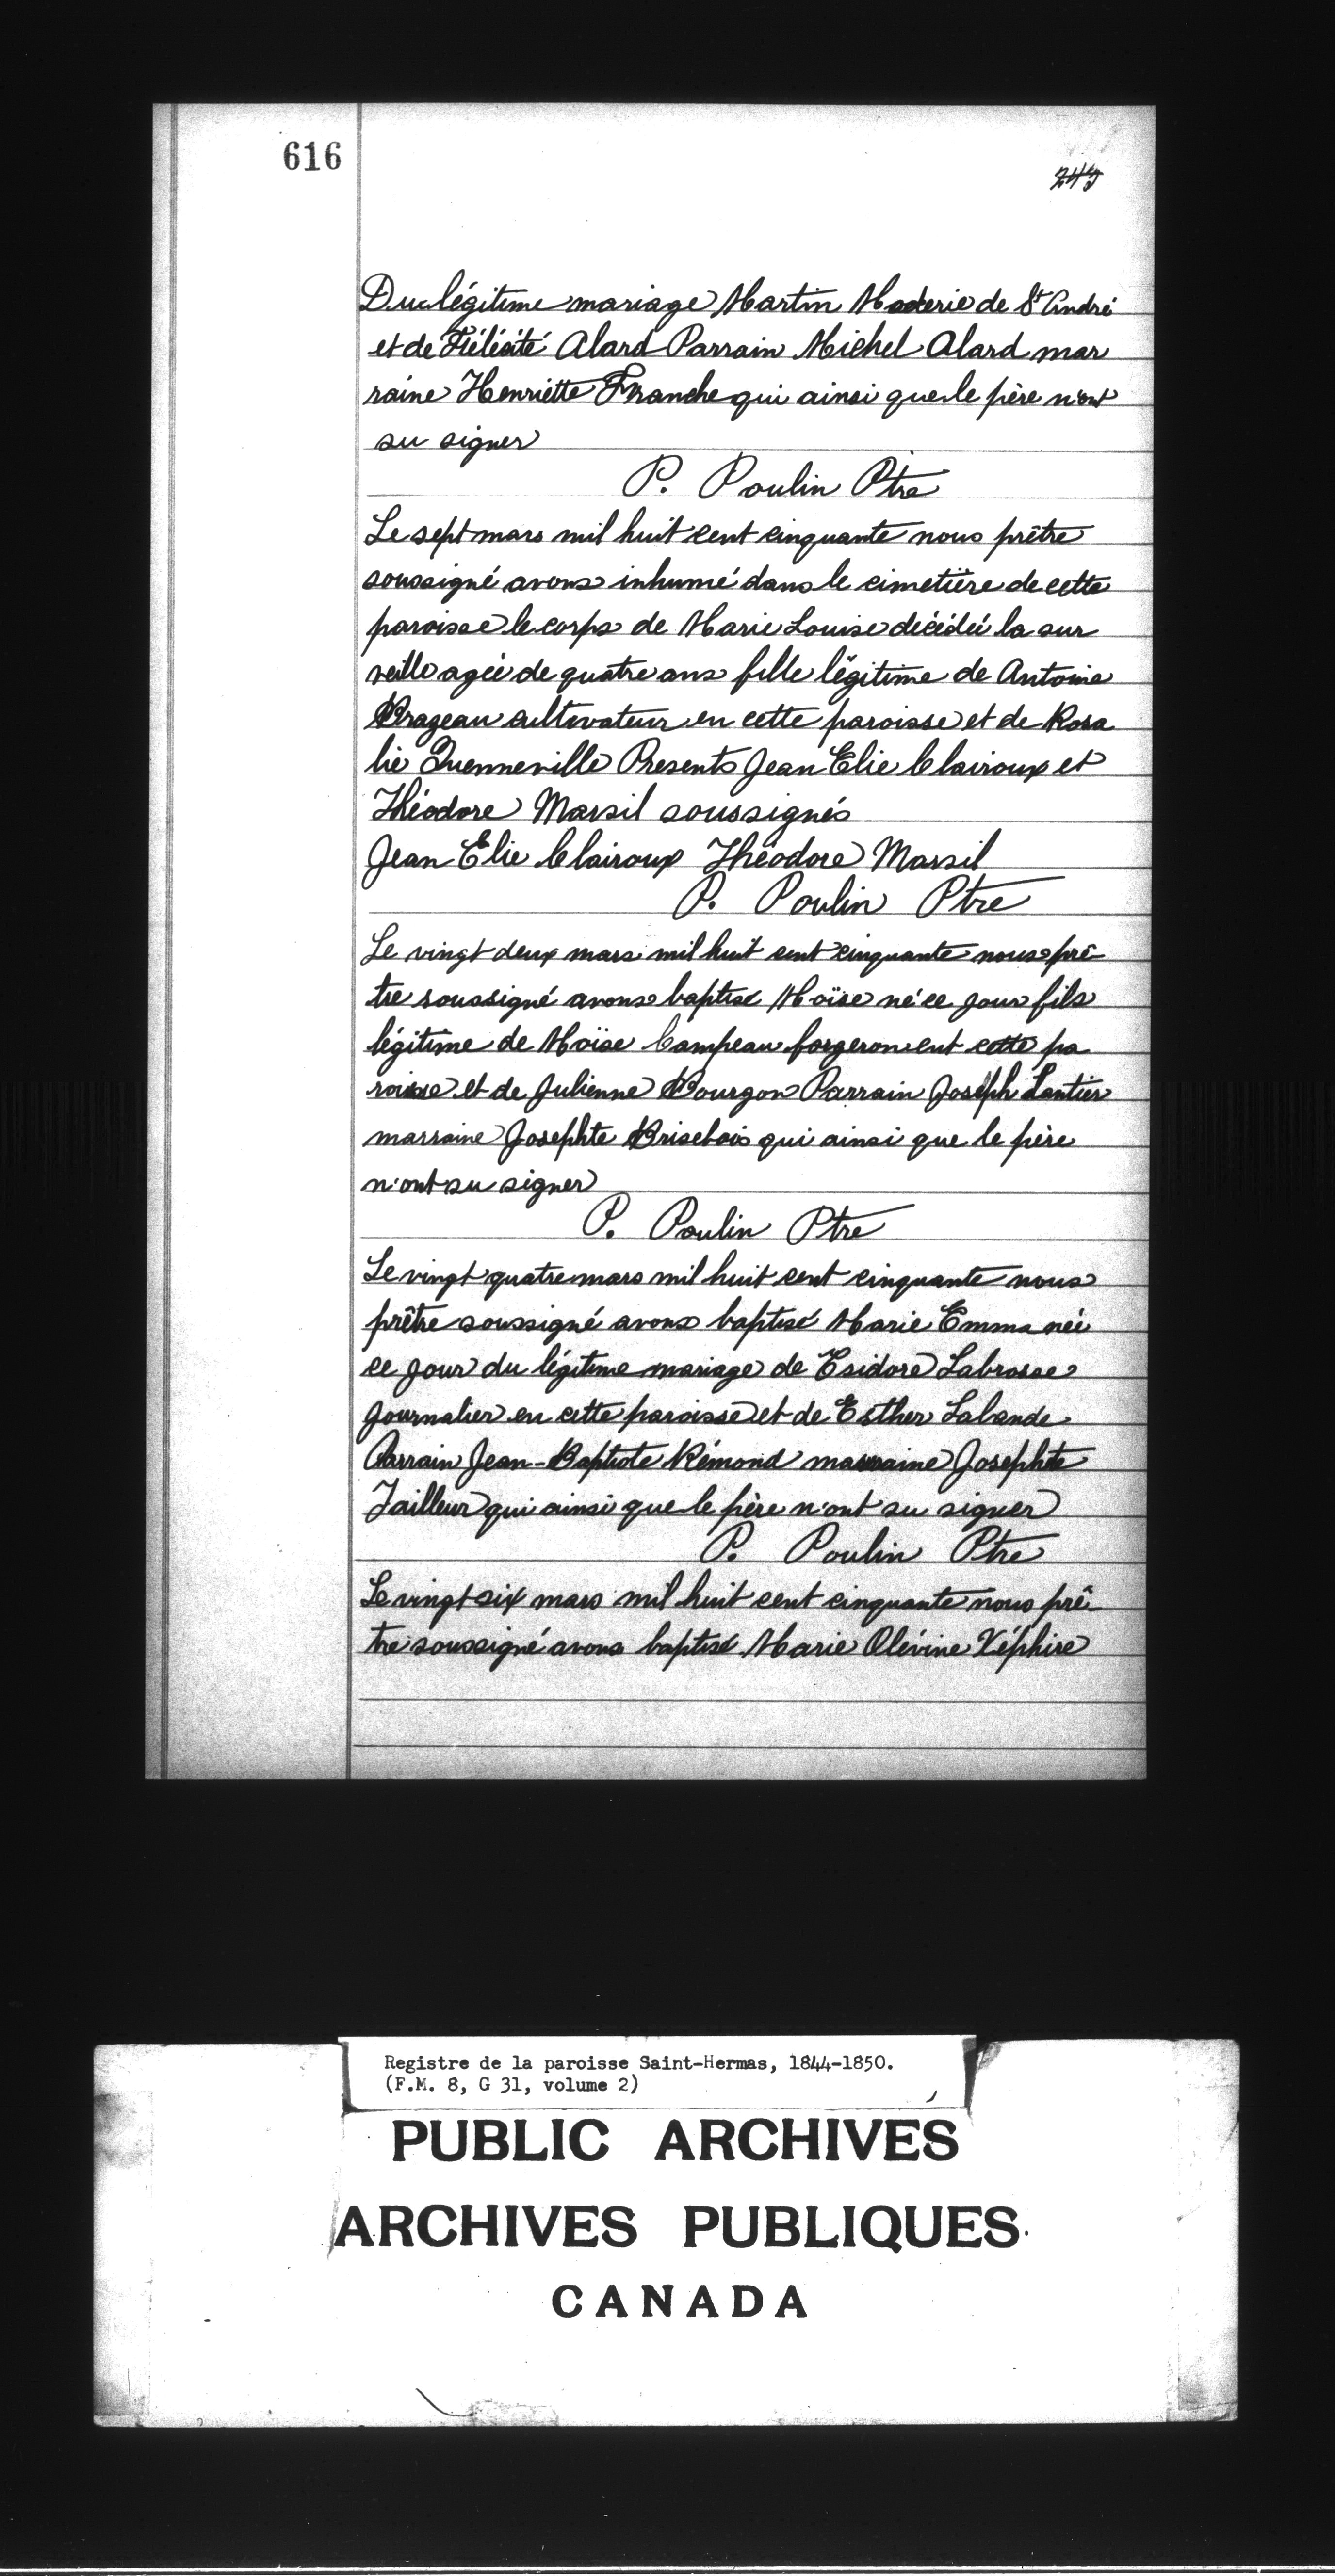 616
245
Du légitime mariage Martin Maderie de St André
et de Félécité Alard Parrain Michel Alard mar
raine Henriette Franche qui ainsi que le père n'ont
su signer
P. Poulin Ptre
Le sept mars mil huit cent cinquante nous prêtre
soussigné avons inhumé dans le cimetière de cette
paroisse le corps de Marie Louise décédée la sur
veille agée de quatre ans fille légitime de Antoine
Brageau cultivateur en cette paroisse et de Rosa
lie Quenneville Presents Jean Elie Clairoux et
Théodore Marsil soussignés
Jean Elie Clairoux Théodore Marsil
P. Poulin Ptre
Le vingt deux mars mil huit cent cinquante nous prê-
tre soussigné avons baptisé Moïse né ce jour fils
légitime de Moïse Campeau forgeron ent cette pa
roisse et de Julienne Bourgon Parrain Joseph Lantier
marraine Josephte Brisebois qui ainsi que le père
n'ont su signer
P. Poulin Ptre
Le vingt quatre mars mil huit cent cinquante nous
prêtre soussigné avons baptisé Marie Emma née
ce jour du légitime mariage de Esidore Labrosse
journalier en cette paroisse et de Esther Lalande
Parrain Jean-Baptiste Rémond marraine Josephte
Tailleur qui ainsi que le père n'ont su signer
P. Poulin Ptre
Le vingt six mars mil huit cent cinquante nous prê-
tre soussigné avons baptisé Marie Olévine Xéphire
Registre de la paroisse Saint-Hermas, 1844-1850.
(F.M. 8, G 31, volume 2)
PUBLIC ARCHIVES
ARCHIVES PUBLIQUES
CANADA